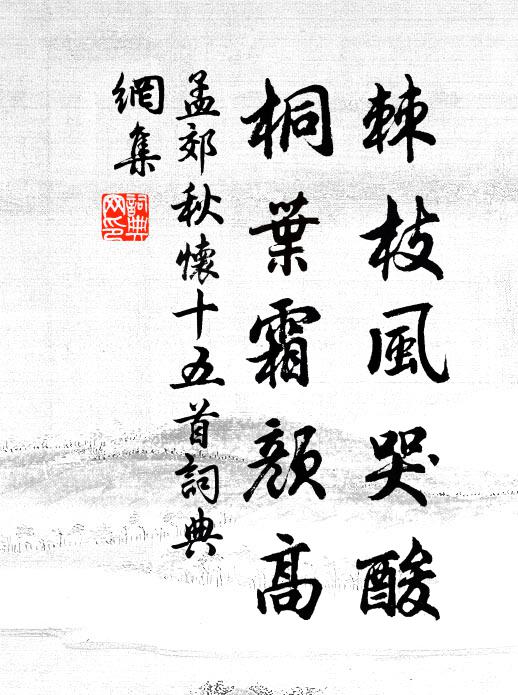 棘枝風哭酸
桐葉霜顔高
孟郊秋懷十五首詞典
網集
詞典
网印